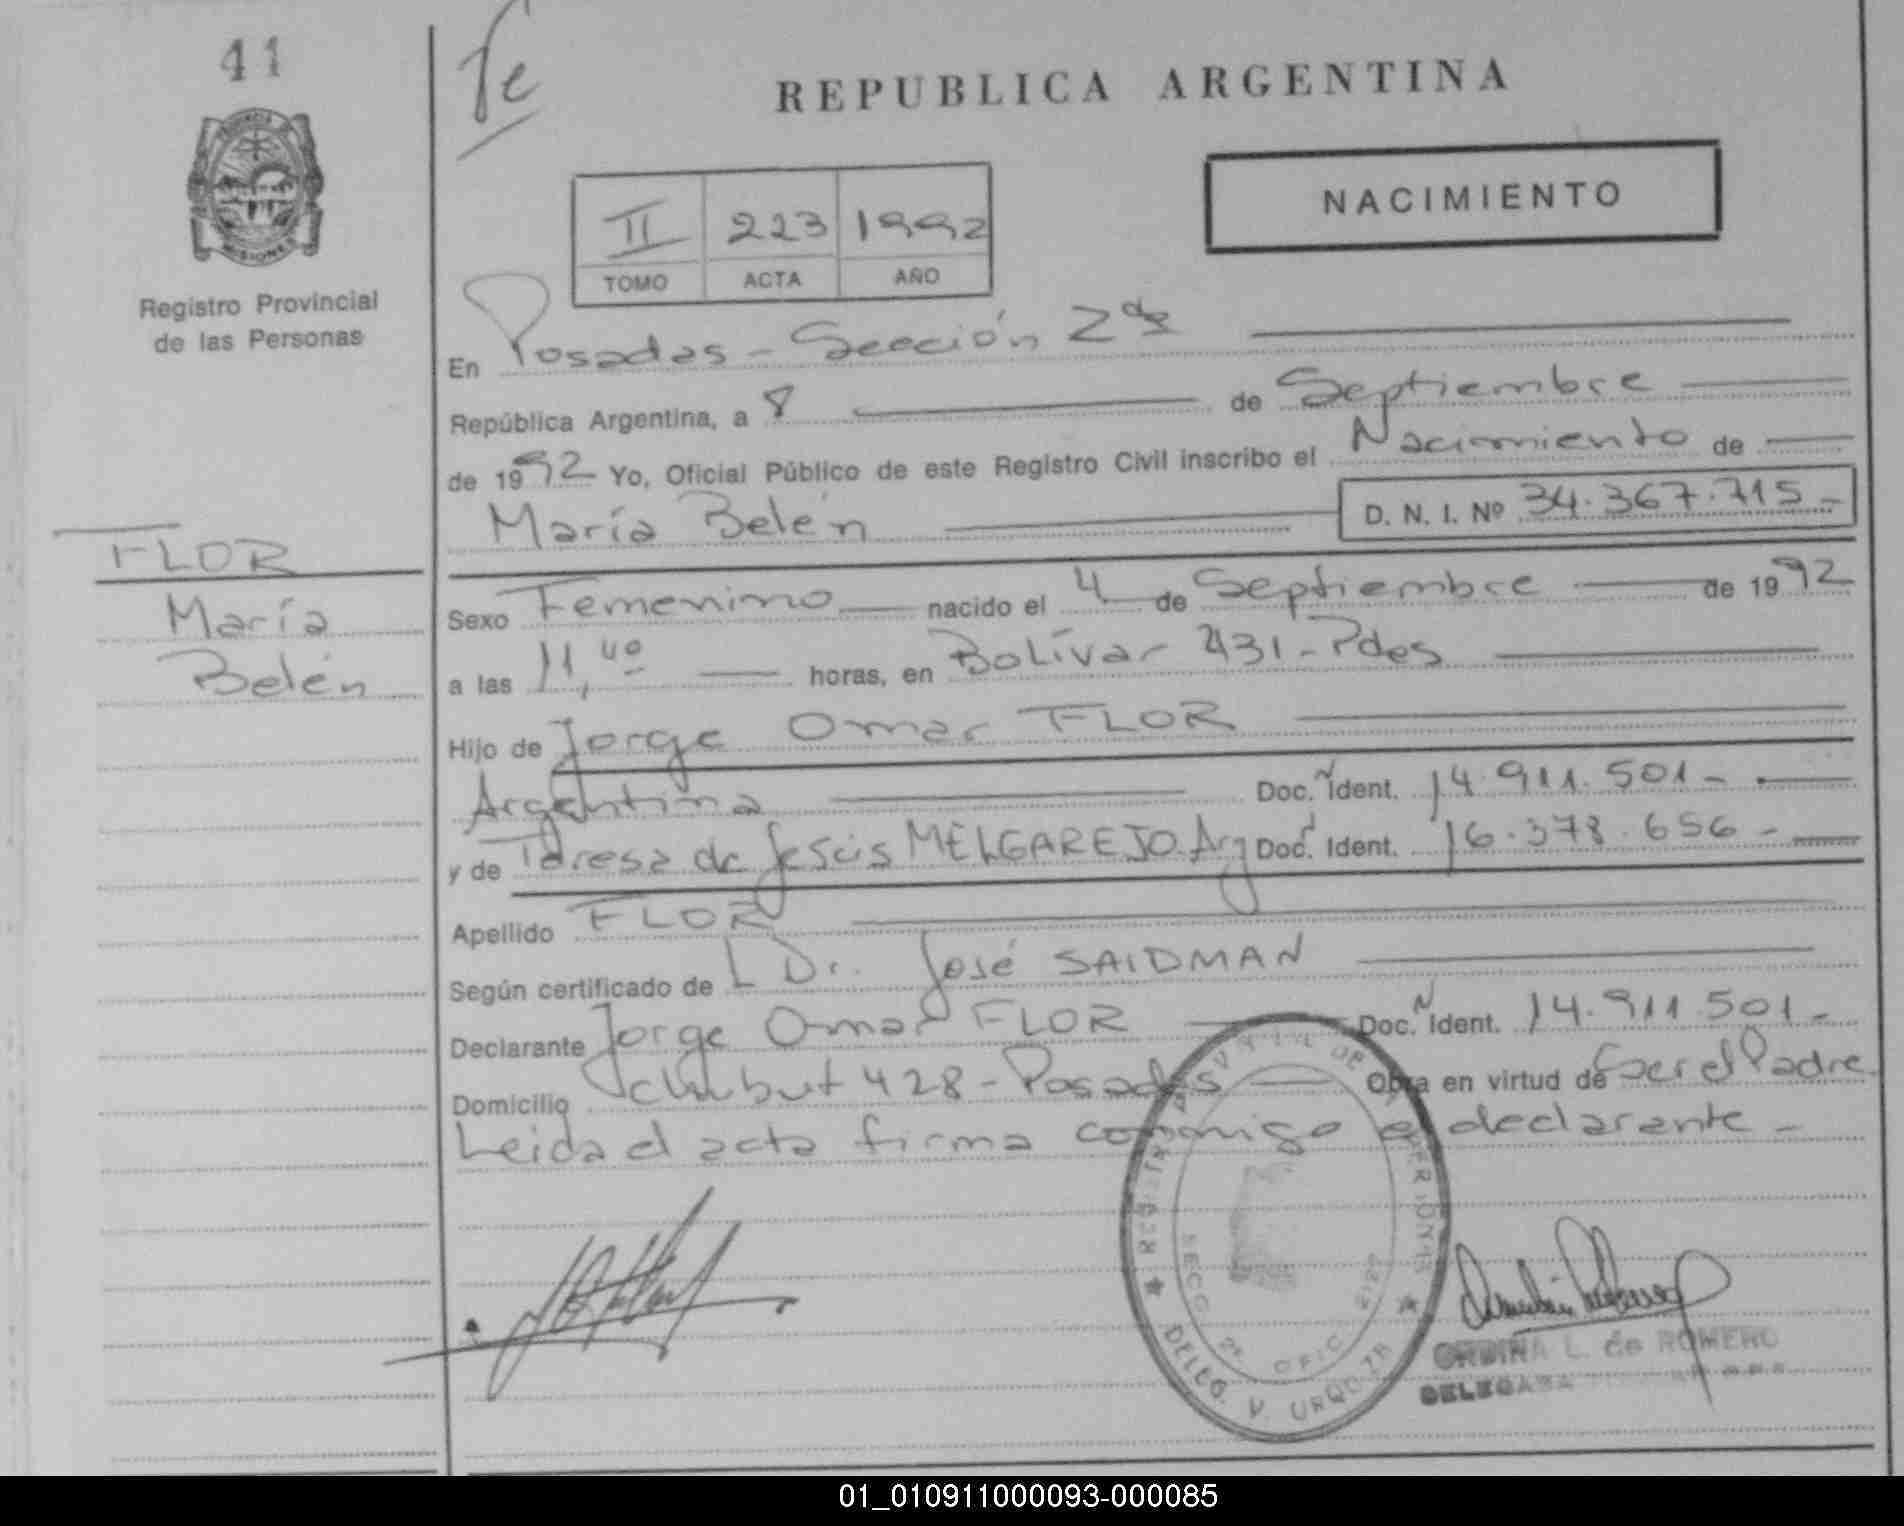 41
REPUBLICA ARGENTINA
PROVINCIA DE
MISIONES
Registro Provincial
de las Personas
NACIMIENTO
II 223 1992
TOMO ACTA AÑO
En Posadas - Sección 2da
República Argentina, a 8 de Septiembre
de 1992 Yo, Oficial Público de este Registro Civil inscribo el Nacimiento de
María Belén D. N. I. Nº 34.367.715-
FLOR
María
Belén
Sexo Femenino nacido el 4 de Septiembre de 1992
a las 11,40 horas, en Bolívar 431-Pdas
Hijo de Jorge Omar FLOR
Argentina Doc. N Ident. 14.911.501-
y de Teresa de Jesús MELGAREJO. Arg Doc. Ident. 16.378.656-
Apellido FLOR
Según certificado de L Dr. José SAIDMAN
Declarante Jorge Omar FLOR Doc. N Ident. 14.911.501-
Domicilio Chubut 428-Posadas Obra en virtud de ser el Padre.
Leida el acta firma conmigo el declarante-
SECC. 2ª OFIC.
DELEG. V. URQUIZA
L. de ROMERO
DELEGADA
01_010911000093-000085